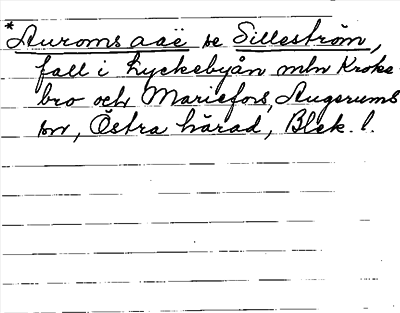 *Auroms aaë se Silleström,
fall i Lyckebyån mln Kroke-
bro och Mariefors, Augerums
sn, Östra härad, Blek. l.